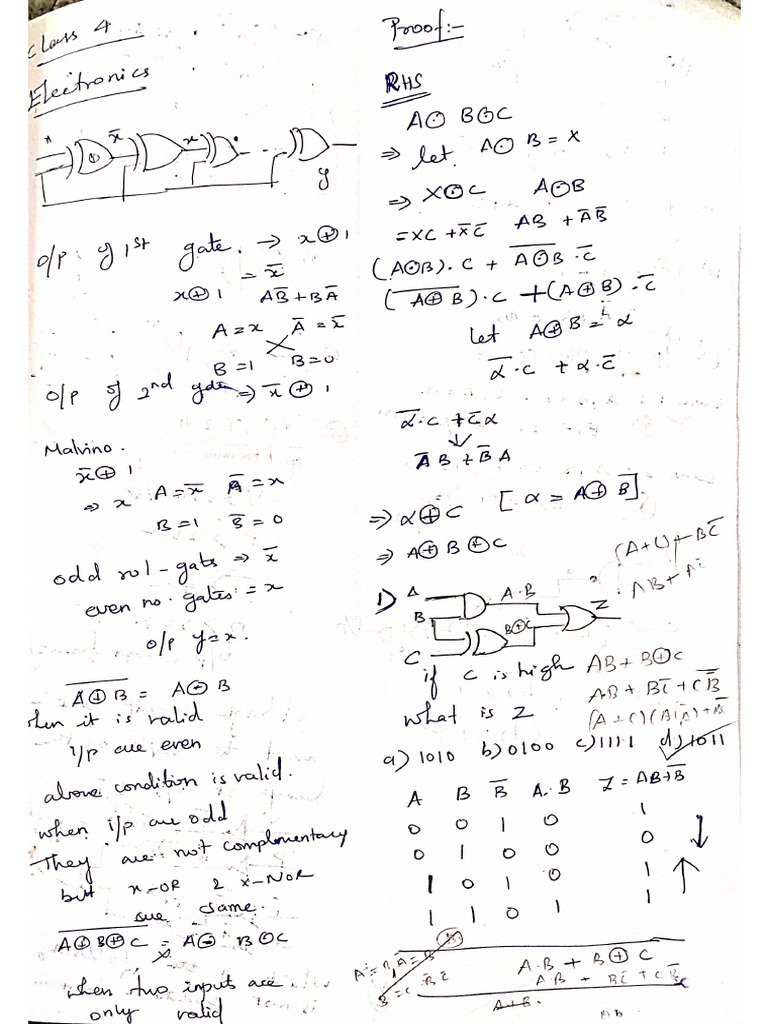 Class 4
Electronics
x
x̄
x
y
o/p of 1st gate. → x⊕1
= x̄
x⊕1 AB̄+BĀ
A=x Ā=x̄
B=1 B=0
o/p of 2nd gate ⇒ x̄⊕1
Malvino.
x̄⊕1
⇒ x A=x̄ Ā=x
B=1 B̄=0
odd no/-gats ⇒ x̄
even no. gates = x
o/p y=x.
\overline{A⊕B} = A⊙B
when it is valid
i/p are even
above condition is valid.
when i/p are odd
They are not complementary
but x-OR & X-NOR
are same.
\overline{A⊕B⊕C} = A⊙B⊙C
when two inputs are
only valid
Proof:-
RHS
A⊙B⊙C
⇒ let A⊙B = X
⇒ X⊙C A⊙B
= XC + X̄C̄ AB + ĀB̄
(A⊙B)·C + \overline{A⊙B}·C̄
(\overline{A⊕B})·C + (A⊕B)·C̄
let A⊕B = α
ᾱ·C + α·C̄
ᾱ·C + C̄α
ĀB + B̄A
⇒ α⊕C [α = A⊕B].
⇒ A⊕B⊕C
1) A
B
C
A·B
B⊕C
Z
if C is high AB+B⊕C
AB + BC̄ + CB̄
what is Z
a) 1010 b) 0100 c) 1111 d) 1011
A B B̄ A.B Z = AB+B̄
0 0 1 0 1
0 1 0 0 0
1 0 1 0 1
1 1 0 1 1
A.B + B⊕C
A.B + BC̄ + CB̄